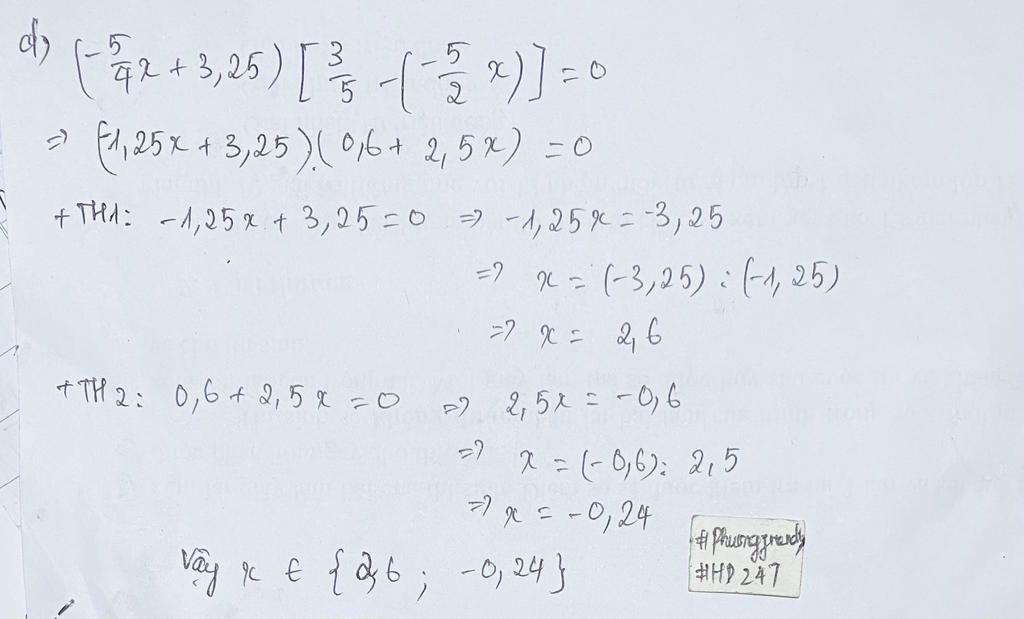 d) (-5/4x + 3,25) [3/5 - (-5/2 x)] = 0
=> (-1,25x + 3,25).(0,6 + 2,5x) = 0
+ TH1: -1,25x + 3,25 = 0 => -1,25x = -3,25
=> x = (-3,25) : (-1,25)
=> x = 2,6
+ TH2: 0,6 + 2,5x = 0 => 2,5x = -0,6
=> x = (-0,6): 2,5
=> x = -0,24
Vậy x ∈ {2,6 ; -0,24}
#HD247